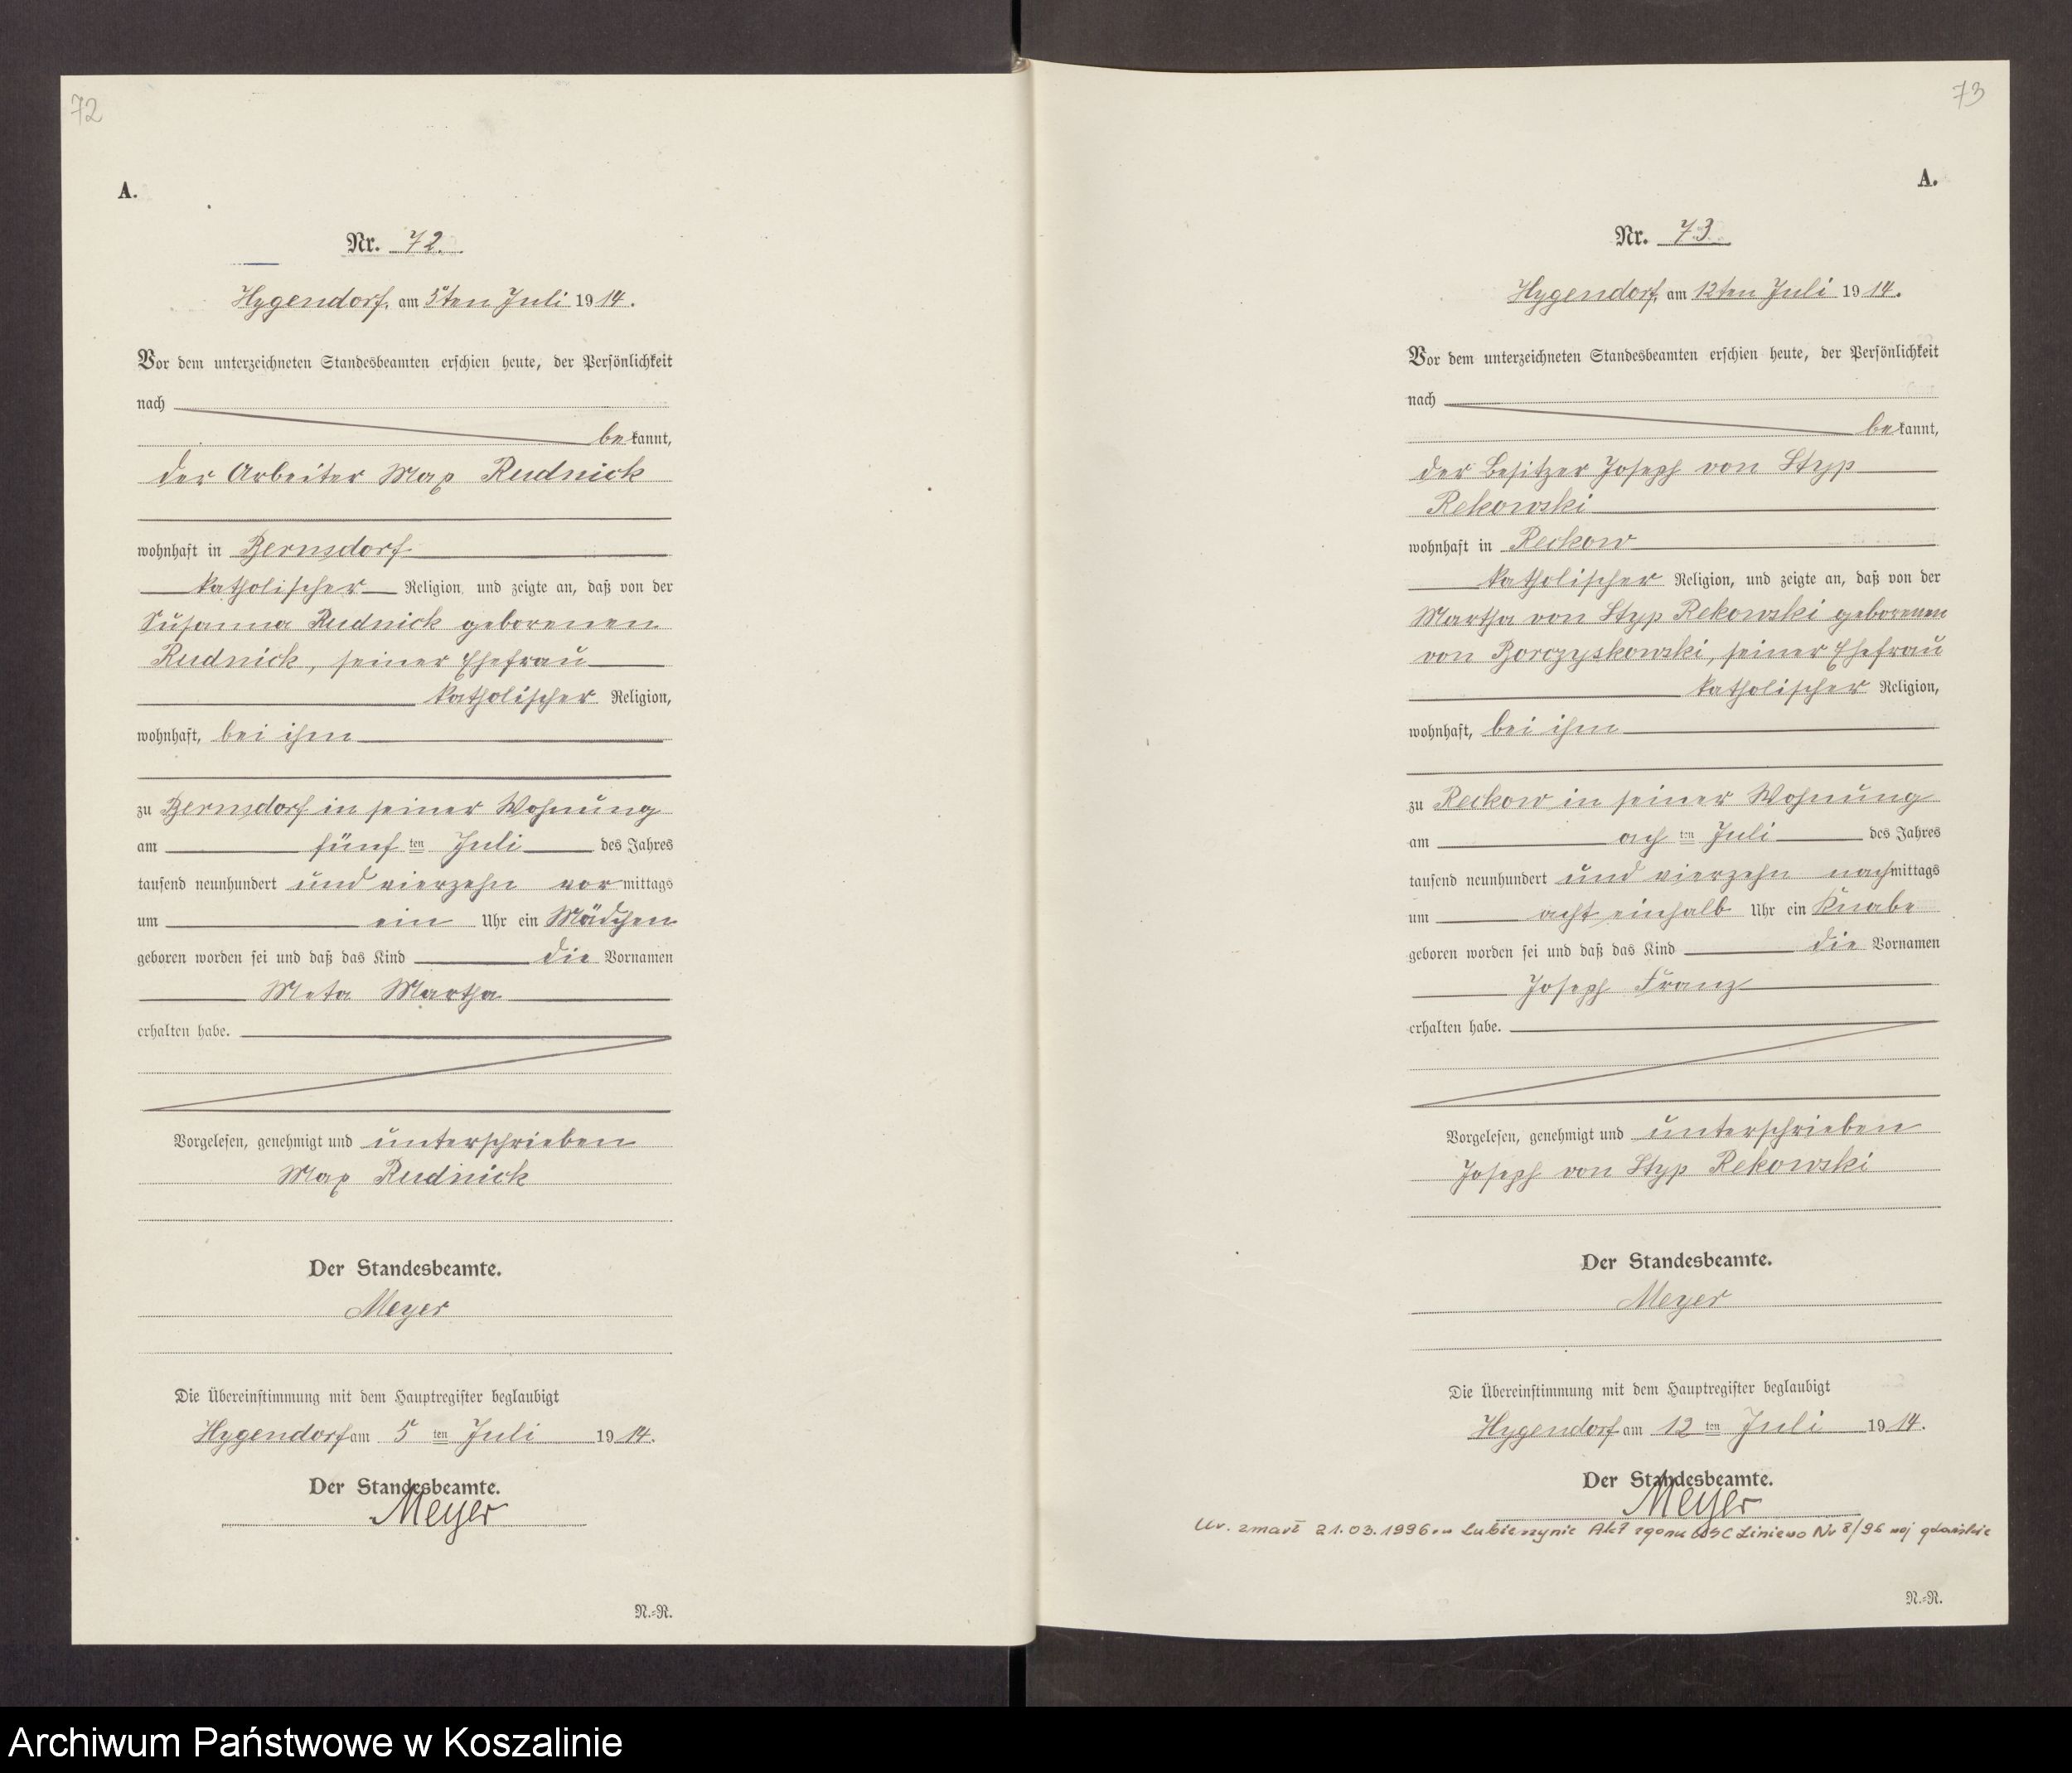 72
A.
Nr. 72.
Hygendorf, am 5ten Juli 1914.
Vor dem unterzeichneten Standesbeamten erschien heute, der Persönlichkeit
nach
bekannt,
der Arbeiter Max Rudnick
wohnhaft in Bernsdorf
katholischer Religion, und zeigte an, daß von der
Susanna Rudnick geborenen
Rudnick, seiner Ehefrau
katholischer Religion,
wohnhaft, bei ihm
zu Bernsdorf in seiner Wohnung
am fünften Juli des Jahres
tausend neunhundert und vierzehn vormittags
um ein Uhr ein Mädchen
geboren worden sei und daß das Kind die Vornamen
Meta Martha
erhalten habe.
Vorgelesen, genehmigt und unterschrieben
Max Rudnick
Der Standesbeamte.
Meyer
Die Übereinstimmung mit dem Hauptregister beglaubigt
Hygendorf am 5ten Juli 1914.
Der Standesbeamte.
Meyer
N.=R.
73
A.
Nr. 73
Hygendorf, am 12ten Juli 1914.
Vor dem unterzeichneten Standesbeamten erschien heute, der Persönlichkeit
nach
bekannt,
der Besitzer Joseph von Styp
Rekowski
wohnhaft in Reckow
katholischer Religion, und zeigte an, daß von der
Martha von Styp Rekowski geborenen
von Borczyskowski, seiner Ehefrau
katholischer Religion,
wohnhaft, bei ihm
zu Reckow in seiner Wohnung
am achten Juli des Jahres
tausend neunhundert und vierzehn nachmittags
um acht einhalb Uhr ein Knabe
geboren worden sei und daß das Kind die Vornamen
Joseph Franz
erhalten habe.
Vorgelesen, genehmigt und unterschrieben
Joseph von Styp Rekowski
Der Standesbeamte.
Meyer
Die Übereinstimmung mit dem Hauptregister beglaubigt
Hygendorf am 12ten Juli 1914.
Der Standesbeamte.
Meyer
Uw. zmarł 21.03.1996 w Lubieszynie Akt zgonu USC Liniewo Nr 8/96 woj gdańskie
N.=R.
Archiwum Państwowe w Koszalinie